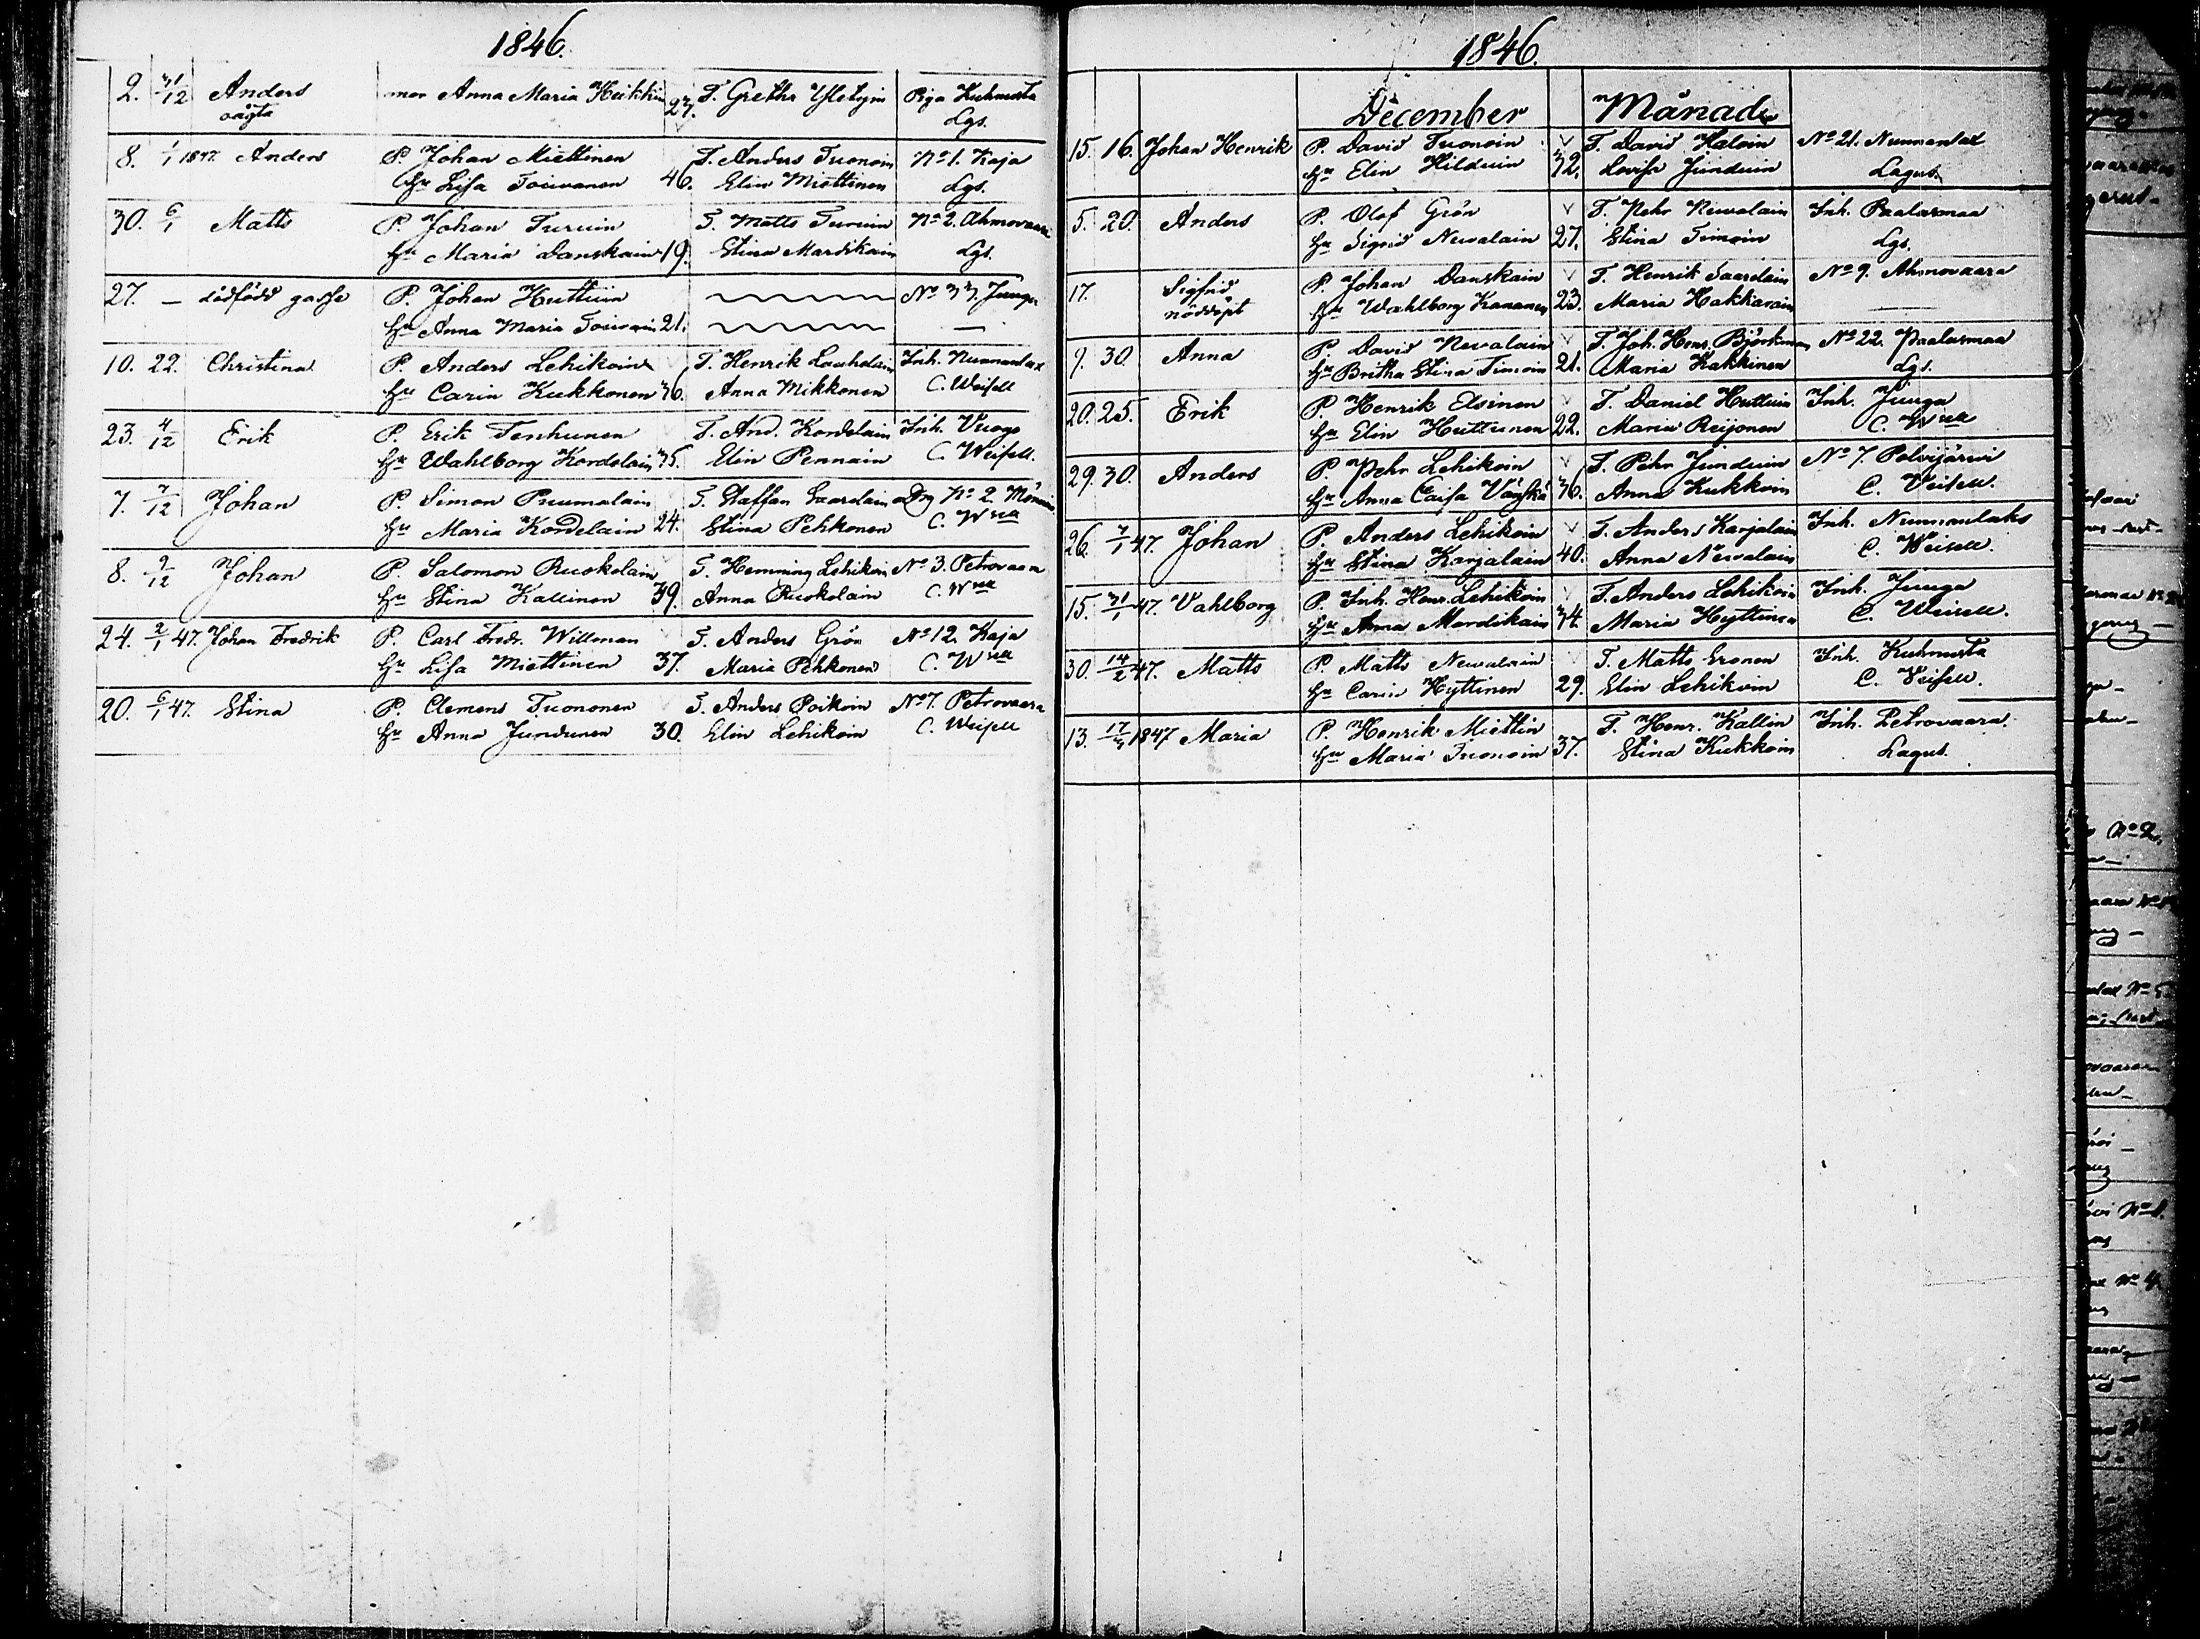 1846.
2. 31/12 Anders mor Anna Maria Heikkin 27. T. Gretha Yletyin Piga Kuhnusta
oägta Lgs.
8. 1/1 1847. Anders P. Johan Miettinen T. Anders Tuonoin No 1. Kaja
Hu Lisa Toiwanen 46. Elin Miettinen Lgs.
30. 6/1 Matts P. Johan Turuin T. Matts Turuin No 2. Ahmovaara
Hu Maria Danskain 19. Stina Mardikain Lgs.
27. — dödfödd gosse P. Johan Huttuin No 33. Juuga
Hu Anna Maria Toiwain 21. —
10. 22. Christina P. Anders Lehikoin T. Henrik Lauhelain Inh. Nunnanlax
Hu Carin Kukkonen 36. Anna Mikkonen C. Weisell
23. 4/12 Erik P. Erik Tenhunen T. And. Kordelain Inh. Vuogo
Hu Wahlborg Kordelain 35. Elin Pennain C. Weisell.
7. 7/12 Johan P. Simon Puumalain T. Staffan Saarelain Drg No 2.
Hu Maria Kordelain 24. Stina Pehkonen C. Wsell
8. 9/12 Johan P. Salomon Ruokolain T. Hemming Lehikoin No 3. Petrovaara
Hu Stina Kallinen 39. Anna Ruokolain C. Wsell
24. 2/1 47. Johan Fredrik P. Carl Fredr. Willman T. Anders Grön No 12. Kaja
Hu Lisa Miettinen 37. Maria Pehkonen C. Wsell
20. 6/1 47. Stina P. Clemens Tuononen T. Anders Poikoin No 7. Petrovaara
Hu Anna Jundunen 30. Elin Lehikoin C. Weisell
1846.
December Månad
15. 16. Johan Henrik P. David Tuonoin T. David Haloin No 21. Nunnanlax
Hu Elin Hilduin 32. Lovisa Junduin Lagus.
5. 20. Anders P. Olof Grön T. Pehr Newalain Inh. Paalasmaa
Hu Sigrid Newalain 27. Stina Timoin Lgs.
17. Sigfrid P. Johan Danskain T. Henrik Saarelain No 9. Ahmovaara
nöddöpt Hu Wahlborg Kananen 23. Maria Hakkarain
9. 30. Anna P. David Newalain T. Joh. Henr. Björkman No 22. Paalasmaa
Hu Britha Stina Timoin 21. Maria Kakkinen Lgs.
20. 25. Erik P. Henrik Elsinen T. Daniel Huttuin Inh. Juuga
Hu Elin Huttunen 22. Maria Reijonen C. Wsell
29. 30. Anders P. Pehr Lehikoin T. Pehr Junduin No 7. Polvijärwi
Hu Anna Caisa Vänskä 36. Anna Kukkoin C. Veisell.
26. 7/1 47. Johan P. Anders Lehikoin T. Anders Karjalain Inh. Nunnanlaks
Hu Stina Karjalain 40. Anna Newalain C. Weisell.
15. 31/1 47. Vahlborg P. Inh. Henr. Lehikoin T. Anders Lehikoin Inh. Juuga
Hu Anna Mardikain 34. Maria Hyttinen C. Weisell.
30. 14/2 47. Matts P. Matts Newalain T. Matts Eronen Inh. Kuhnusta
Hu Carin Hyttinen 29. Elin Lehikoin C. Veisell.
13. 17/3 1847 Maria P. Henrik Miettin T. Henr. Kallin Inh. Petrovaara.
Hu Maria Tuonoin 37. Stina Kukkoin Lagus.